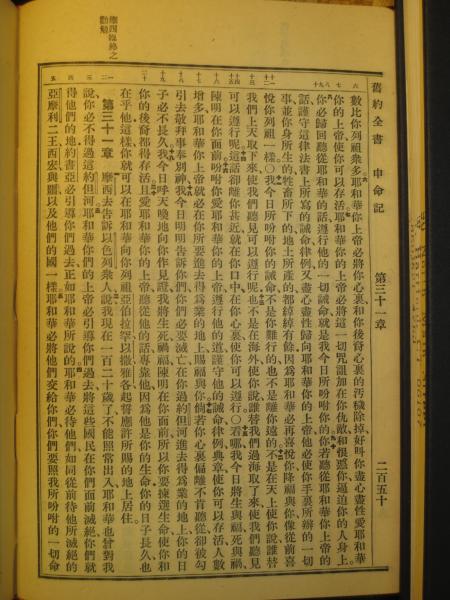 舊約全書 申命記 第三十一章 二百五十
數比你列祖衆多耶和華你上帝必將你心裏和你後裔心裏的汚穢除掉好叫你盡心盡性愛耶和華
你的上帝使你可以存活耶和華你的上帝必將這一切咒詛加在你仇敵和恨惡你逼迫你的人身上
你必回歸聽從耶和華的話遵行他的一切誡命就是我今日所吩咐你的你若聽從耶和華你上帝的
話謹守這律法書上所寫的誡命律例又盡心盡性歸向耶和華你的上帝他必使你手裏所辦的一切
事並你身所生的牲畜所下的地土所產的都綽綽有餘因爲耶和華必再喜悅你降福與你像從前喜
悅你列祖一樣○我今日所吩咐你的誡命不是你難行的也不是離你遠的不是在天上使你說誰替
我們上天取下來使我們聽見可以遵行呢也不是在海外使你說誰替我們過海取了來使我們聽見
可以遵行呢這話卻離你甚近就在你口中在你心裏使你可以遵行○看哪我今日將生與福死與禍
陳明在你面前吩咐你愛耶和華你上帝遵行他的道謹守他的誡命律例典章使你可以存活人數
增多耶和華你上帝就必在你所要進去得爲業的地上賜福與你倘若你心裏偏離不肯聽從卻被勾
引去敬拜事奉別神我今日明明告訴你們你們必要滅亡在你過約但河進去得爲業的地上你的日
子必不長久我今日呼天喚地向你作見證我將生死禍福陳明在你面前所以你要揀選生命使你和
你的後裔都得存活且愛耶和華你的上帝聽從他的話專靠他因爲他是你的生命你的日子長久也
在乎他這樣你就可以在耶和華向你列祖亞伯拉罕以撒雅各起誓應許所賜的地上居住
第三十一章 摩西去告訴以色列衆人說我現在一百二十歲了不能照常出入耶和華也曾對我
說你必不得過這約但河耶和華你們的上帝必引導你們過去將這些國民在你們面前滅絕你們就
得他們的地約書亞必引導你們過去正如耶和華所說的耶和華必待他們如同從前待他所滅絕的
亞摩利二王西宏與噩以及他們的國一樣耶和華必將他們交給你們你們要照我所吩咐的一切命
摩西臨終之
勸勉